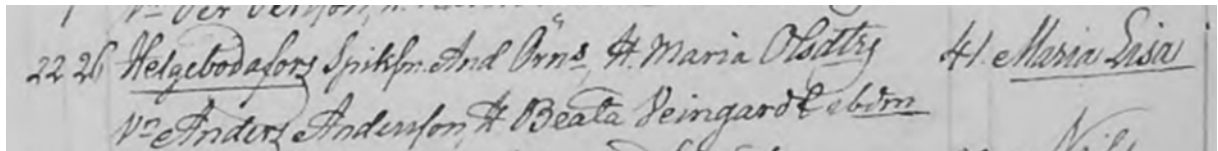 22 26 Helgebodafors Spiksm. And Örns, H. Maria Olsdtrs 41. Maria Lisa
Vn Anders Andersson, H Beata Veingardt ebdm